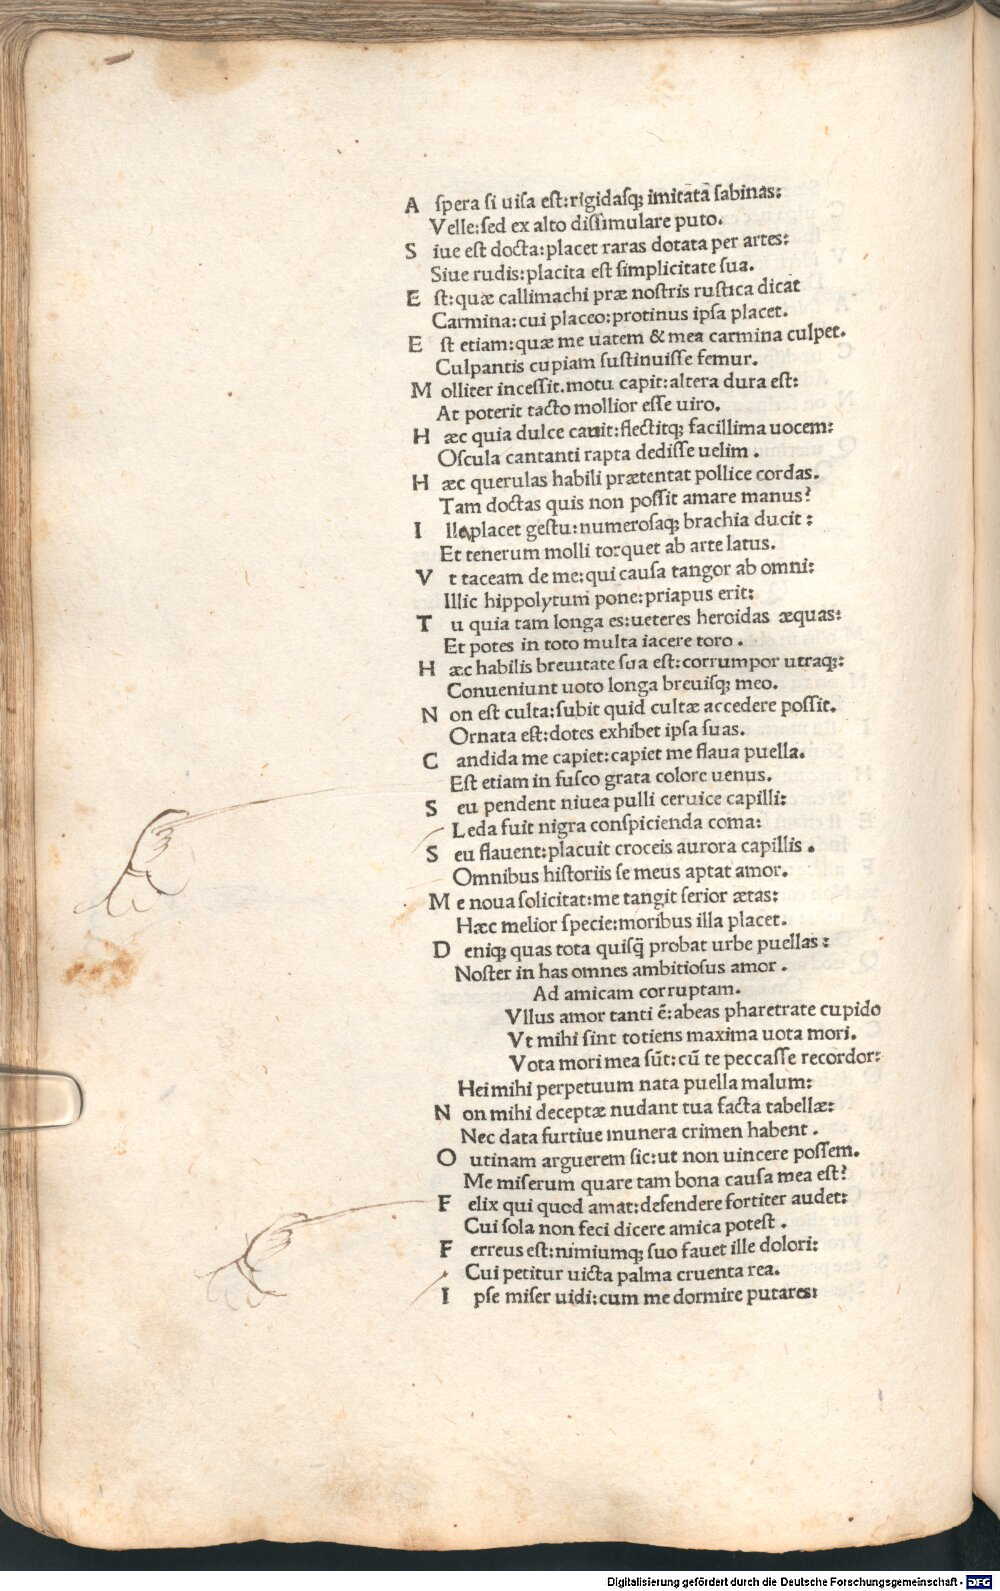 A spera si uisa est:rigidasq; imitãtã sabinas:
Velle:sed ex alto dissimulare puto.
S iue est docta:placet raras dotata per artes:
Siue rudis:placita est simplicitate sua.
E st:quæ callimachi præ nostris rustica dicat
Carmina:cui placeo:protinus ipsa placet.
E st etiam:quæ me uatem & mea carmina culpet.
Culpantis cupiam sustinuisse femur.
M olliter incessit.motu capit:altera dura est:
At poterit tacto mollior esse uiro.
H æc quia dulce canit:flectitq; facillima uocem:
Oscula cantanti rapta dedisse uelim.
H æc querulas habili prætentat pollice cordas.
Tam doctas quis non possit amare manus?
I lla placet gestu:numerosaq; brachia ducit:
Et tenerum molli torquet ab arte latus.
V t taceam de me:qui causa tangor ab omni:
Illic hippolytum pone:priapus erit:
T u quia tam longa es:ueteres heroidas æquas:
Et potes in toto multa iacere toro.
H æc habilis breuitate sua est:corrumpor utraq;:
Conueniunt uoto longa breuisq; meo.
N on est culta:subit quid cultæ accedere possit.
Ornata est:dotes exhibet ipsa suas.
C andida me capiet:capiet me flaua puella.
Est etiam in fusco grata colore uenus.
S eu pendent niuea pulli ceruice capilli:
Leda fuit nigra conspicienda coma:
S eu flauent:placuit croceis aurora capillis.
Omnibus historiis se meus aptat amor.
M e noua solicitat:me tangit serior ætas:
Hæc melior specie:moribus illa placet.
D eniq; quas tota quisq̃ probat urbe puellas:
Noster in has omnes ambitiosus amor.
Ad amicam corruptam.
Vllus amor tanti ẽ:abeas pharetrate cupido
Vt mihi sint totiens maxima uota mori.
Vota mori mea sũt:cũ te peccasse recordor:
Hei mihi perpetuum nata puella malum:
N on mihi deceptæ nudant tua facta tabellæ:
Nec data furtiue munera crimen habent.
O utinam arguerem sic:ut non uincere possem.
Me miserum quare tam bona causa mea est?
F elix qui quod amat:defendere fortiter audet:
Cui sola non feci dicere amica potest.
F erreus est:nimiumq; suo fauet ille dolori:
Cui petitur uicta palma cruenta rea.
I pse miser uidi:cum me dormire putares:
Digitalisierung gefördert durch die Deutsche Forschungsgemeinschaft - DFG